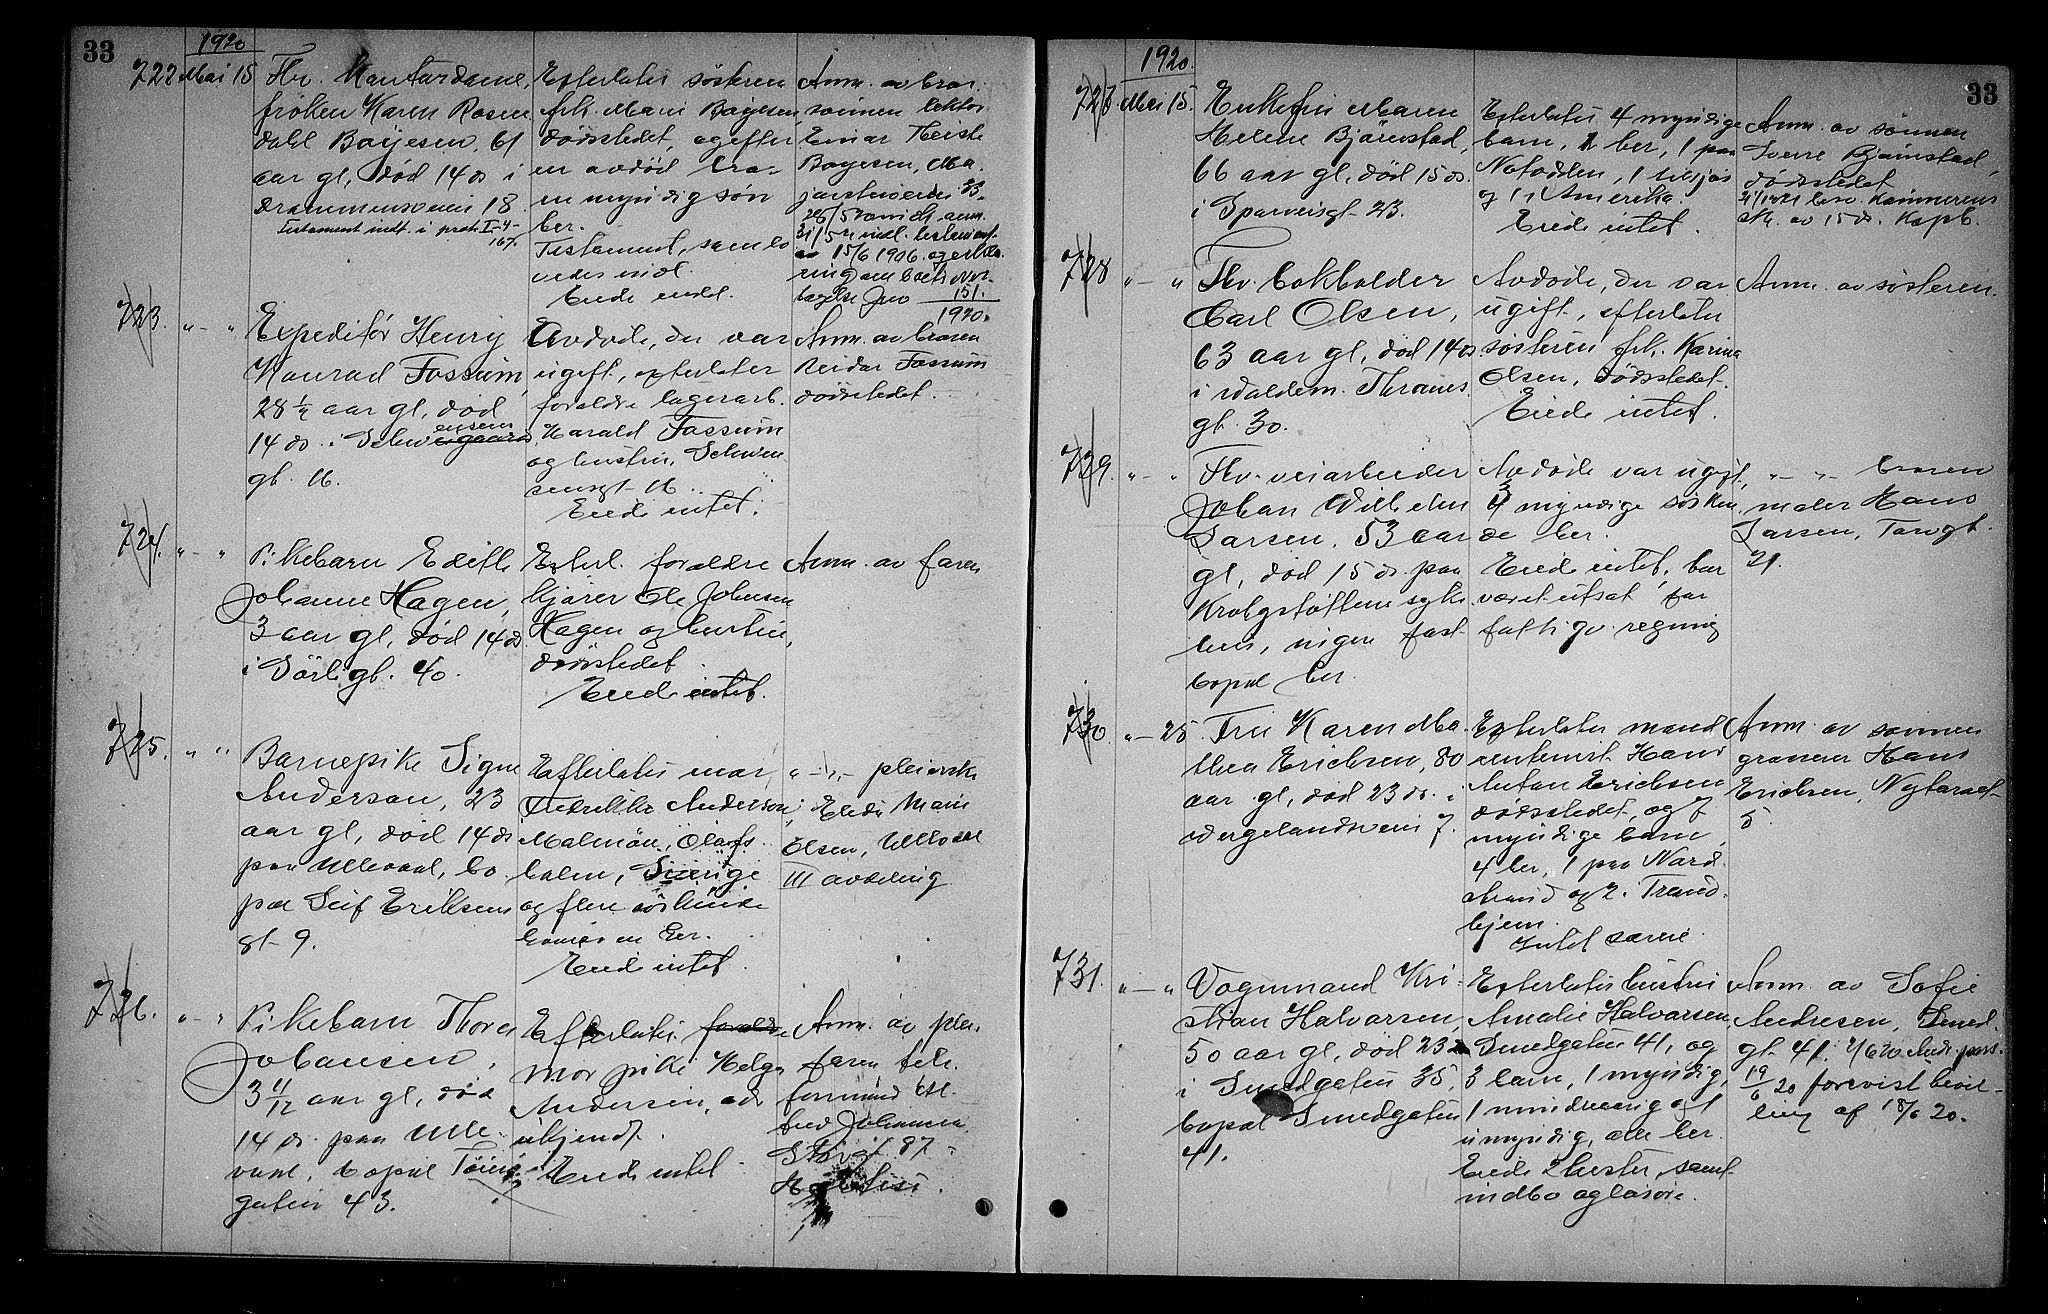 33
1920
722 Mai 15
Fhv. Kontordame,
frøken Karen Rosen
dahl Boyesen, 61
aar gl, død 14 ds i
Drammensveien 18
Testament indt. i prot. I-4-
167.
Efterlater søsteren
frk. Marie Boyesen,
dødsstedet, og efter
en avdød bro-
en myndig søn
her.
Testament, som lo
vedes indl.
Eiede endel.
Anm. av bror
sønnen lektor
Einar Theiste
Boyesen, Ma
jorstuveien 33
31/5 indl. testament
av 15/6 1906 og erklæ
ring om boets over
tagelse Jnr 151.
1920.
723. " - "
Expeditør Henry
Konrad Fossum,
28 1/2 aar gl, død
14 ds. i Schwensens
gt. 16.
Avdøde, der var
ugift, efterlater
forældre lagerarb.
Harald Fossum
og hustru, Schwen
sensgt 16.
Eiede intet.
Anm. av broren
Reidar Fossum
dødsstedet.
724. " - "
Pikebarn Edith
Johanne Hagen,
3 aar gl, død 14 ds
i Sörligt. 40.
Efterl. forældre
kjører Ole Johnsen
Hagen og hustru,
dødsstedet.
Eiede intet.
Anm. av faren
725. " "
Barnepike Signe
Anderson, 23
aar gl, død 14 ds
paa Ullevaal, bo
pæl Leif Eriksens
gt 9.
Efterlater mor,
Fredrikke Anderson,
Malmön, Olofs
holm, Sverige
og flere søskende
hvorav en her.
Eiede intet.
" - " pleierske
Elida Marie
Olsen, Ullevaal
III avdeling
726. " - "
Pikebarn Thora
Johansen,
3 11/12 aar gl, død
14 ds. paa Ulle
vaal, bopæl Tøien
gaten 43.
Efterlater forældre
mor pike Helga
Andersen, adr
ukjendt.
Eiede intet.
Anm. av plei
faren
formand
Johansen
87
33
1920.
727 Mai 15.
Enkefru Maren
Helene Bjørnstad,
66 aar gl, død 15 ds.
i Sparveisgt 23.
Efterlater 4 myndige
barn, 1 her, 1 paa
Notodden, 1 tilsjøs
og 1 i Amerika.
Eiede intet.
Anm. av sønnen
Sverre Bjørnstad,
dødsstedet
728 " - "
Fhv. bokholder
Carl Olsen,
63 aar gl, død 14 ds
i Waldem. Thranes
gt. 30.
Avdøde, der var
ugift, efterlater
søsteren frk. Karina
Olsen, dødsstedet.
Eiede intet.
Anm. av søsteren.
729. " - "
Fhv. veiarbeider
Johan Wilhelm
Larsen, 53 aar
gl, død 15 ds. paa
Krohgstøttens syke
hus, ingen fast
bopæl her.
Avdøde var ugift,
3 myndige søsken
de her.
Eiede intet, har
været utsat for
fattigv. regning
" - " broren
maler Hans
Larsen, Torvgt.
21.
730. " - 25
Fru Karen Ma
thea Erichsen, 80
aar gl, død 23 ds. i
Wergelandsveien 7.
Efterlater mand
rentenist Hans
Anton Erichsen
dødsstedet, og 7
myndige barn,
4 her, 1 paa Nord
strand og 2 i Trond
hjem.
Intet særeie.
Anm. av sønnen
grosserer Hans
Erichsen, Nytorvet
5.
731. " - "
Vognmand Kri
stian Halvorsen,
50 aar gl, død 23 ds
i Smedgaten 35,
bopæl Smedgaten
41.
Efterlater hustru
Amalie Halvorsen,
Smedgaten 41, og
3 barn, 1 myndig,
1 mindreaarig og 1
umyndig, alle her.
Eiede 2 hester, samt
indbo og løsøre.
Anm. av Sofie
Andresen, Smed
gt. 41.
19/6 20 forevist bevil
ling af 18/6 20.